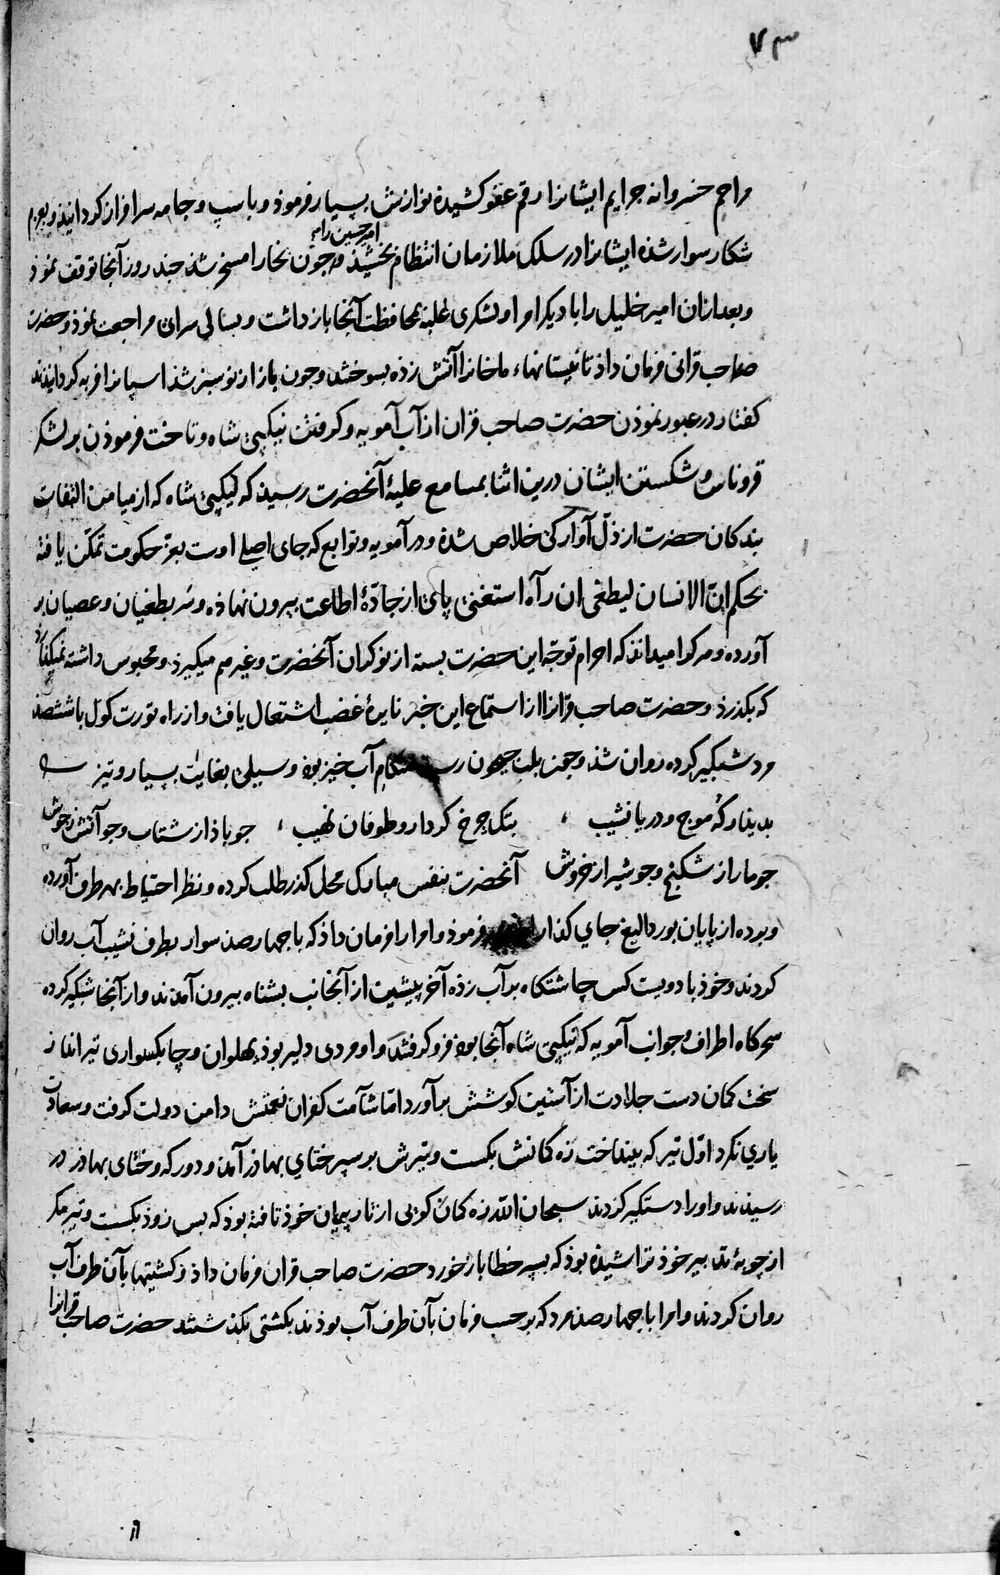 ۷۳
مراحم خسروانه جرایم ایشانرا رقم عفو کشیده نوازش بسیار فرموذ و باسپ و جامه سرافراز کردانیذ و بعزم
امیر حسین را
شکار سوار شذه ایشانرا در سلک ملازمان انتظام بخشیذ و چون بخارا مسخر شذ چند روز آنجا توقف نموذ
و بعد ازان امیر خلیل را با دیکر امرا و لشکری غلبه بمحافظت آنجا بازداشت و بسالی سرای مراجعت نموذ و حضرت
صاحب قرانی فرمان داذ تا نیستانهاء ماخانرا آتش زذه بسوختند و چون باز از نو سبز شذ اسپانرا فربه کردانیدند
کفتار در عبور نموذن حضرت صاحب قران از آب آمویه و کرفتن نیکپی شاه و تاخت فرموذن بر لشکر
قروناس و شکستن ایشان درین اثنا بمسامع علیهٔ آنحضرت رسیذ که نیکپی شاه که از میامن التفات
بندکان حضرت از ذلّ آوارکی خلاص شده و در آمویه و توابع که جای اصلی اوست بعز حکومت تمکّن یافته
بحکم انّ الانسان لیطغی ان رآه استغنی پای از جادّهٔ اطاعت بیرون نهاذه و سر بطغیان و عصیان بر
آورده و هر کرا میدانذ که احرام توجّه این حضرت بسته از نوکران آنحضرت و غیرهم میکیرذ و محبوس داشته نمیکذارذ
که بکذرذ و حضرت صاحب قرانرا از استماع این خبر نایرهٔ غضب اشتعال یافت و از راه تورت کول باششصد
مرد شبکیر کرده روان شذ و چون بلب جیحون رسید هنکام آب خیز بوذ و سیلی بغایت بسیار و تیز
بدینار که موج و دریا نشیب ، بتک چرخ کردار و طوفان نهیب ، چو باذ از شتاب و چو آتش ز جوش
چو مار از شکنج و چو شیر از خروش آنحضرت بنفس مبارک محل کذر طلب کرده و نظر احتیاط بهر طرف آورده
و برده از پایان بوردالیغ جای کذار فرموذ و امرا را فرمان داذ که با چهارصد سوار بطرف نشیب آب روان
کردند و خوذ با دویست کس چاشتکاه بر آب زذه آخر پیشین از آنجانب بشناه بیرون آمدند و از آنجا شبکیر کرده
سحرکاه اطراف و جوانب آمویه که نیکپی شاه آنجا بوذ فرو کرفتند و او مردی دلیر بوذ پهلوان و چابکسواری تیر انداز
سخت کمان دست جلادت از آستین کوشش برآورد امّا شآمت کفران نعمتش دامن دولت کرفت و سعادت
یاری نکرد اوّل تیر که بینداخت زه کمانش بکست و تیرش بر سپر ختای بهاذر آمد و دورکه و ختای بهاذر در
رسیدند و او را دستکیر کردند سبحان الله زه کمان کوئی از تار پیمان خوذ تافته بوذ که بس زوذ بکست و تیر مکر
از چوبهٔ تدبیر خوذ تراشیذه بوذ که بسپر خطا باز خورد حضرت صاحب قران فرمان داذ و کشتیها بآن طرف آب
روان کردند و امرا با چهارصد مرد که بر حسب فرمان بآن طرف آب بوذند بکشتی بکذشتند حضرت صاحب قرانرا